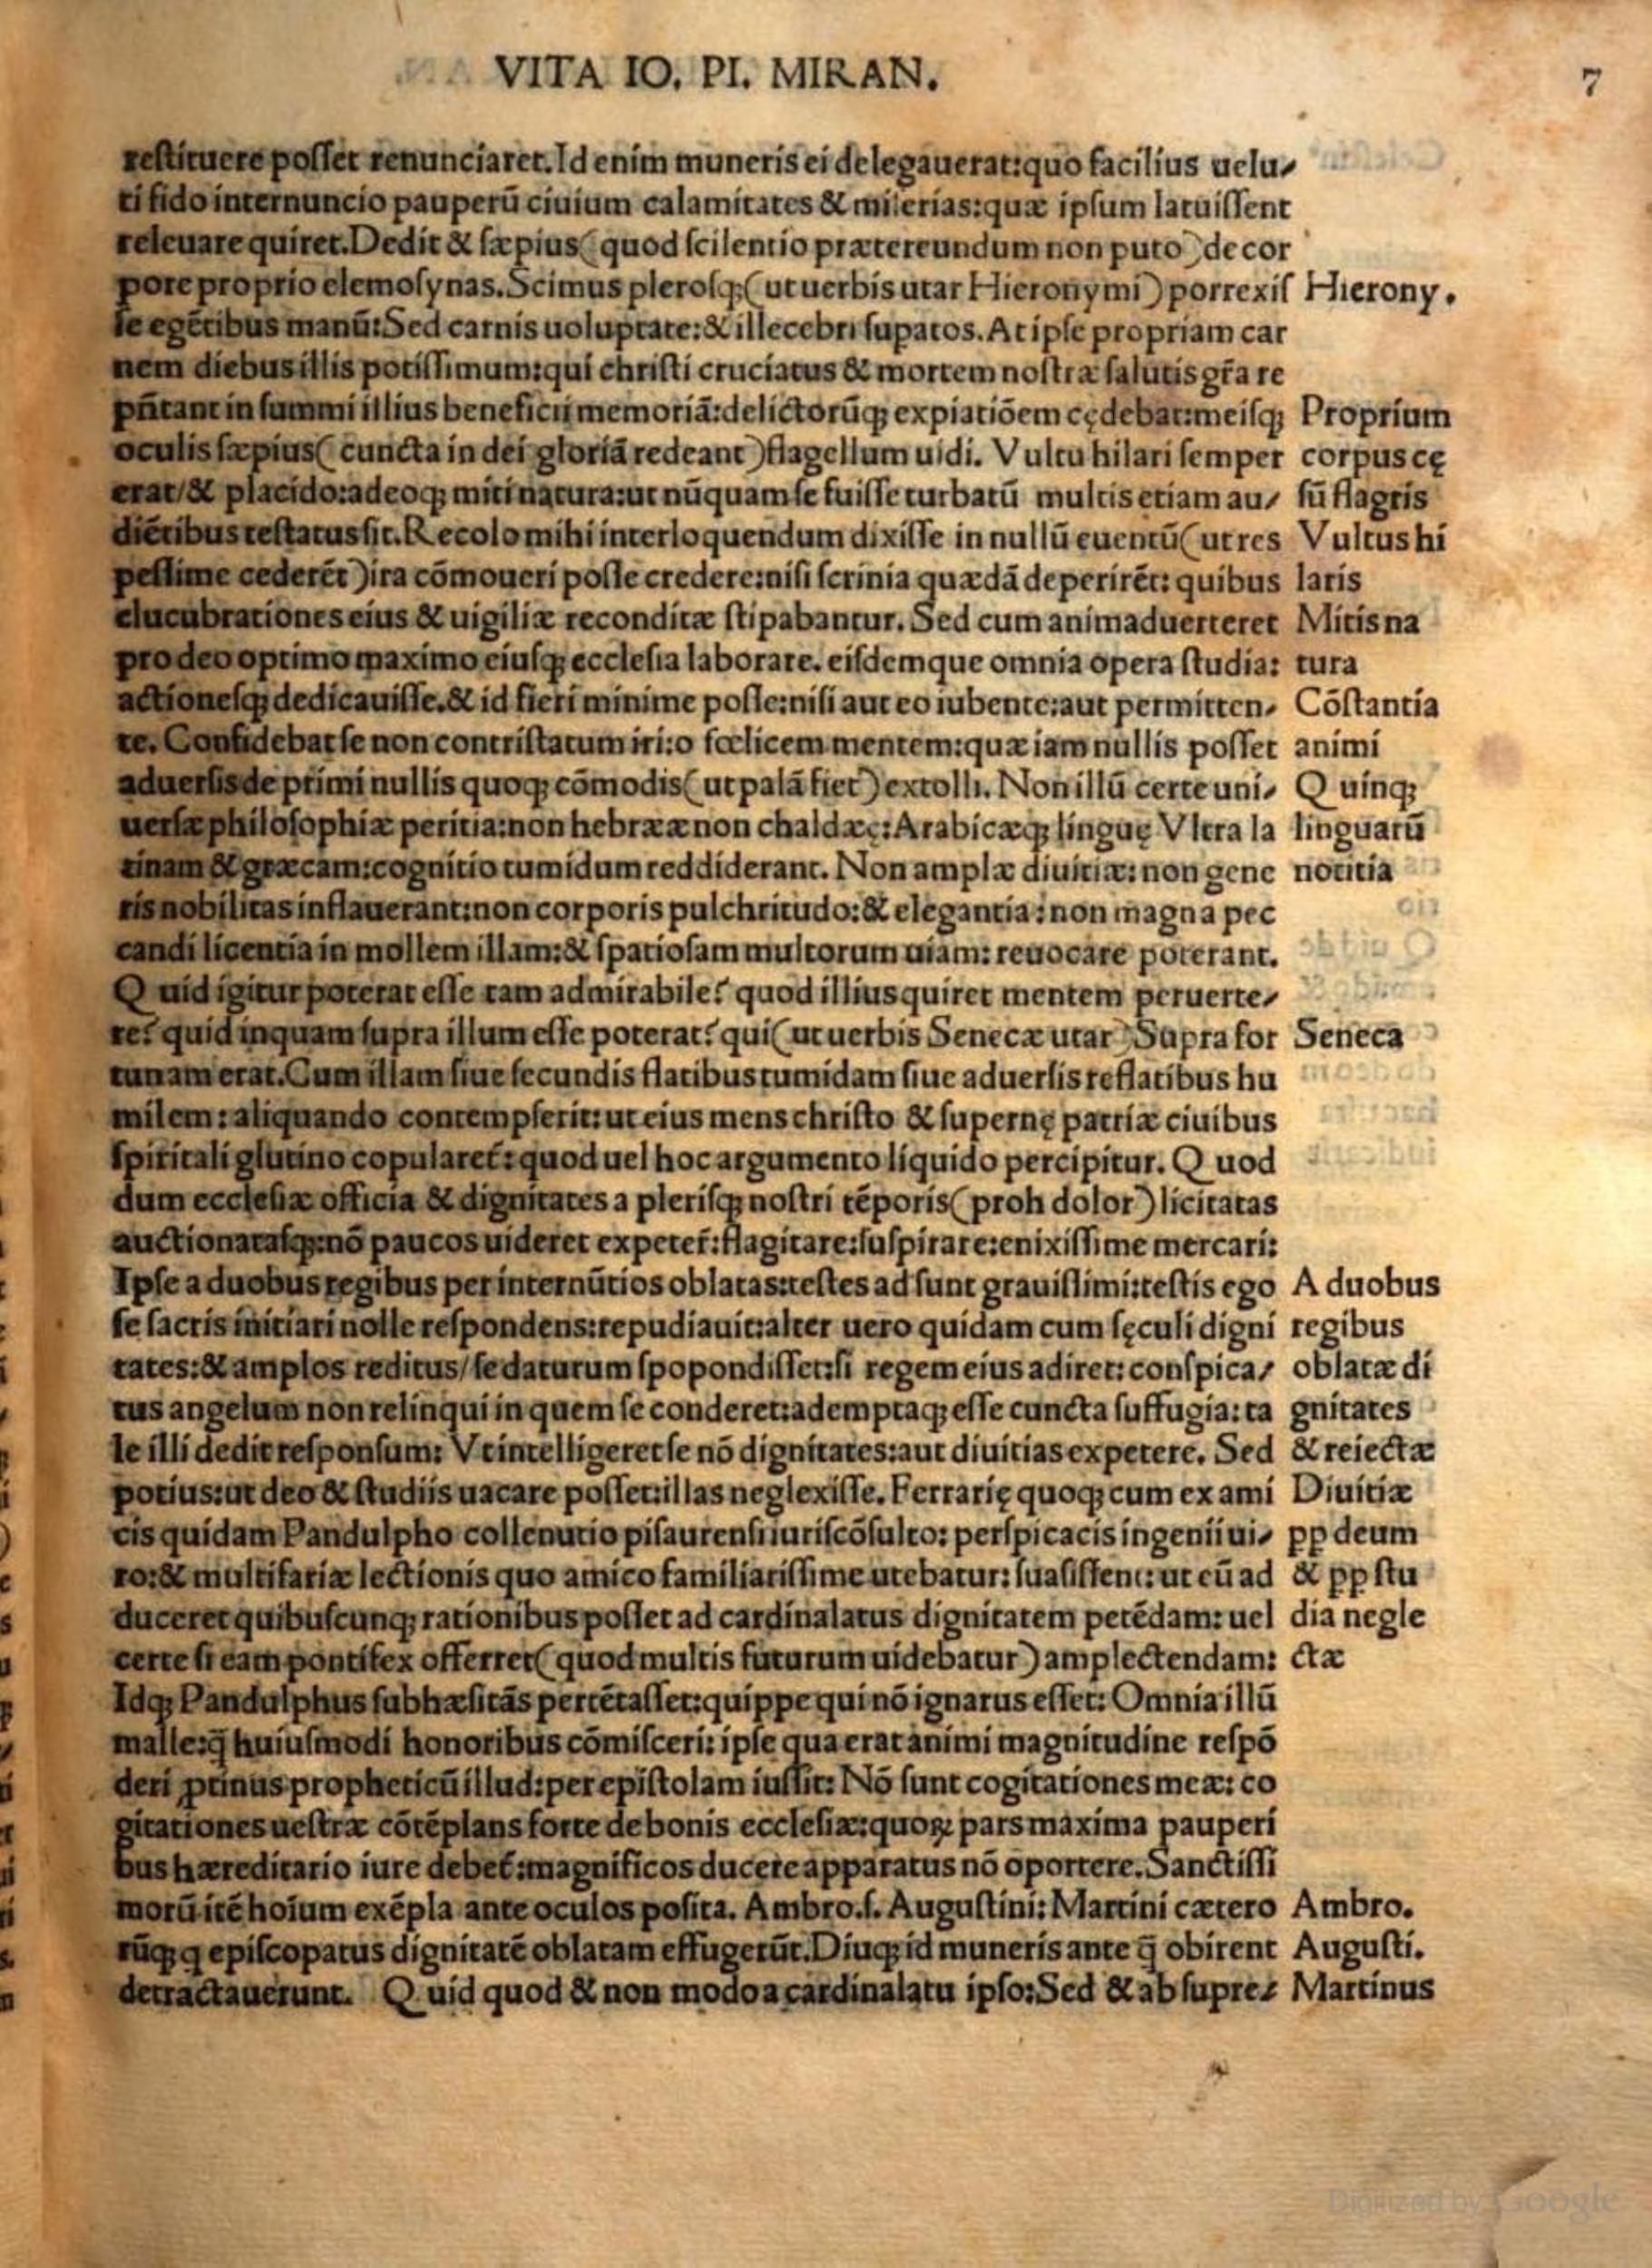 VITA IO. PI. MIRAN.
7
restituere posset renunciaret. Id enim muneris ei delegauerat: quo facilius uelu⸗
ti fido internuncio pauperū ciuium calamitates & miserias: quæ ipsum latuissent
releuare quiret. Dedit & sæpius (quod scilentio prætereundum non puto) de cor
pore proprio elemosynas. Scimus plerosq; (ut uerbis utar Hieronymi) porrexis
se egētibus manū: Sed carnis uoluptate: & illecebri supatos. At ipse propriam car
nem diebus illis potissimum: qui christi cruciatus & mortem nostræ salutis gr̃a re
pñtant in summi illius beneficii memoriā: delictorūq; expiatiōem cędebat: meisq;
oculis sæpius (cuncta in dei gloriā redeant) flagellum uidi. Vultu hilari semper
erat/ & placido: adeoq; miti natura: ut nūquam se fuisse turbatū multis etiam au⸗
diētibus testatus sit. Recolo mihi interloquendum dixisse in nullū euentū (ut res
pessime cederēt) ira cōmoueri posse credere: nisi scrinia quædā deperirēt: quibus
elucubrationes eius & uigiliæ reconditæ stipabantur. Sed cum animaduerteret
pro deo optimo maximo eiusq; ecclesia laborare. eisdemque omnia opera studia:
actionesq; dedicauisse. & id fieri minime posse: nisi aut eo iubente: aut permitten⸗
te. Confidebat se non contristatum iri: o fœlicem mentem: quæ iam nullis posset
aduersis deprimi nullis quoq; cōmodis (ut palā fiet) extolli. Non illū certe uni⸗
uersæ philosophiæ peritia: non hebrææ non chaldæę: Arabicæq; linguę Vltra la
tinam & græcam: cognitio tumidum reddiderant. Non amplæ diuitiæ: non gene
ris nobilitas inflauerant: non corporis pulchritudo: & elegantia: non magna pec
candi licentia in mollem illam: & spatiosam multorum uiam: reuocare poterant.
Quid igitur poterat esse tam admirabile? quod illius quiret mentem peruerte⸗
re? quid inquam supra illum esse poterat? qui (ut uerbis Senecæ utar) Supra for
tunam erat. Cum illam siue secundis flatibus tumidam siue aduersis reflatibus hu
milem: aliquando contempserit: ut eius mens christo & supernę patriæ ciuibus
spiritali glutino copularet̃: quod uel hoc argumento liquido percipitur. Quod
dum ecclesiæ officia & dignitates a plerisq; nostri tēporis (proh dolor) licitatas
auctionatasq;: nō paucos uideret expeter̃: flagitare: suspirare: enixissime mercari:
Ipse a duobus regibus per internūtios oblatas: testes adsunt grauissimi: testis ego
se sacris initiari nolle respondens: repudiauit: alter uero quidam cum sęculi digni
tates: & amplos reditus/ se daturum spopondisset: si regem eius adiret: conspica⸗
tus angelum non relinqui in quem se conderet: ademptaq; esse cuncta suffugia: ta
le illi dedit responsum: Vt intelligeret se nō dignitates: aut diuitias expetere. Sed
potius: ut deo & studiis uacare posset: illas neglexisse. Ferrarię quoq; cum ex ami
cis quidam Pandulpho collenutio pisaurensi iuriscōsulto: perspicacis ingenii ui⸗
ro: & multifariæ lectionis quo amico familiarissime utebatur: suasissent: ut eū ad
duceret quibuscunq; rationibus posset ad cardinalatus dignitatem petēdam: uel
certe si eam pontifex offerret (quod multis futurum uidebatur) amplectendam:
Idq; Pandulphus subhæsitās pertētasset: quippe qui nō ignarus esset: Omnia illū
malle: q̄ huiusmodi honoribus cōmisceri: ipse qua erat animi magnitudine respō
deri ꝓtinus propheticū illud: per epistolam iussit: Nō sunt cogitationes meæ: co
gitationes uestræ cōtēplans forte de bonis ecclesiæ: quoꝝ pars maxima pauperi
bus hæreditario iure debet̃: magnificos ducere apparatus nō oportere. Sanctissi
morū itē hoīum exēpla ante oculos posita. Ambro. s. Augustini: Martini cætero
rūq; q episcopatus dignitatē oblatam effugerūt. Diuq; id muneris ante q̄ obirent
detractauerunt. Quid quod & non modo a cardinalatu ipso: Sed & ab supre⸗
Hierony.
Proprium
corpus cę
sū flagris
Vultus hi
laris
Mitis na
tura
Cōstantia
animi
Quinq;
linguarū
notitia
Seneca
A duobus
regibus
oblatæ di
gnitates
& reiectæ
Diuitiæ
ꝓp deum
& ꝓp stu
dia negle
ctæ
Ambro.
Augusti.
Martinus
Digitized by Google